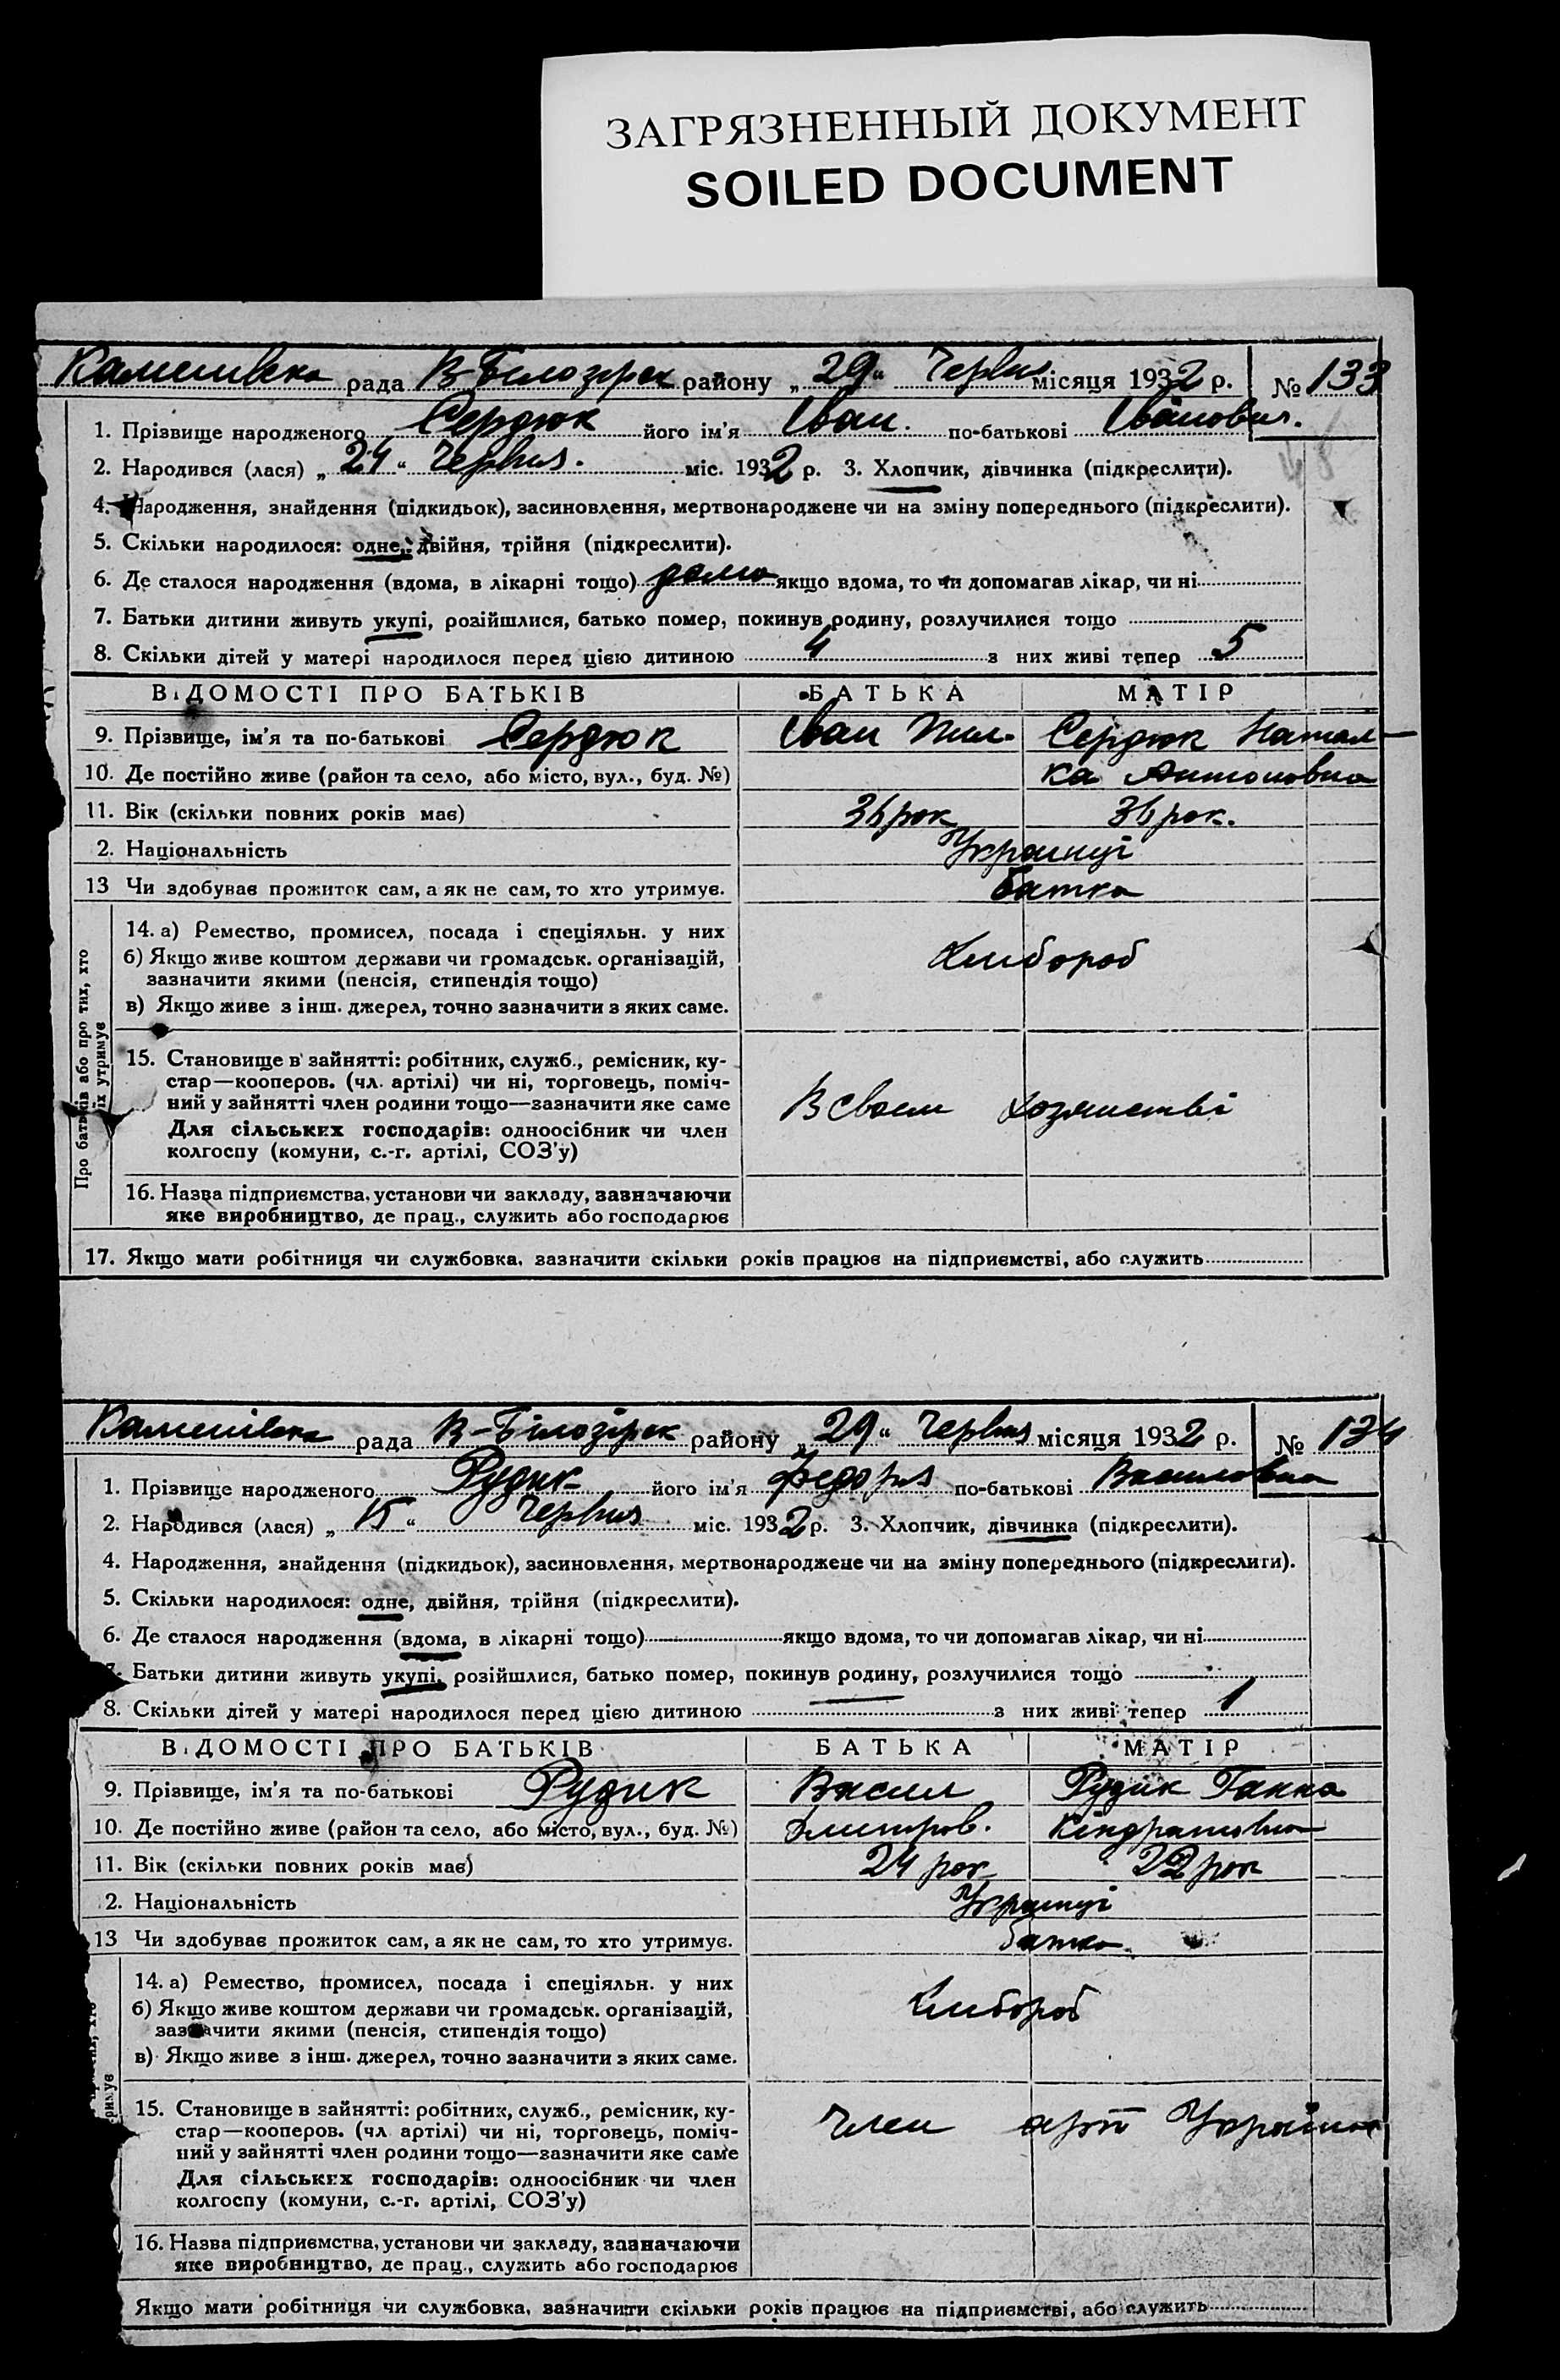 ЗАГРЯЗНЕННЫЙ ДОКУМЕНТ
SOILED DOCUMENT
рада В-Білозірск району „ 29 “ Червня місяця 1932 р. № 133
1. Прізвище народженого Сердюк його ім'я Іван. по-батькові Іванович.
2. Народився (лася) „ 24 “ Червня. міс. 1932 р. 3. Хлопчик, дівчинка (підкреслити).
4. Народження, знайдення (підкидьок), засиновлення, мертвонароджене чи на зміну попереднього (підкреслити).
5. Скільки народилося: одне, двійня, трійня (підкреслити).
6. Де сталося народження (вдома, в лікарні тощо) дома якщо вдома, то чи допомагав лікар, чи ні
7. Батьки дитини живуть укупі, розійшлися, батько помер, покинув родину, розлучилися тощо
8. Скільки дітей у матері народилося перед цією дитиною 4 з них живі тепер 5
ВІДОМОСТІ ПРО БАТЬКІВ БАТЬКА МАТІР
9. Прізвище, ім'я та по-батькові Сердюк Іван Сердюк Натал-
10. Де постійно живе (район та село, або місто, вул., буд. №) ка Антоновна
11. Вік (скільки повних років має) 36 рок 36 рок.
2. Національність Украінці
13 Чи здобував прожиток сам, а як не сам, то хто утримує. батько
Про батьків або про тих, хто їх утримує
14. а) Ремество, промисел, посада і спеціяльн. у них
б) Якщо живе коштом держави чи громадськ. організацій,
зазначити якими (пенсія, стипендія тощо) Хлибороб
в) Якщо живе з інш. джерел, точно зазначити з яких саме.
15. Становище в зайнятті: робітник, служб., ремісник, ку-
стар—кооперов. (чл. артілі) чи ні, торговець, поміч-
ний у зайнятті член родини тощо—зазначити яке саме В своем хозяистві
Для сільських господарів: одноосібник чи член
колгоспу (комуни, с.-г. артілі, СОЗ'у)
16. Назва підприємства, установи чи закладу, зазначаючи
яке виробництво, де прац., служить або господарює
17. Якщо мати робітниця чи службовка, зазначити скільки років працює на підприємстві, або служить
рада В-Білозірск району „ 29 “ Червня місяця 1932 р. № 134
1. Прізвище народженого Рудик його ім'я Федора по-батькові Василовна
2. Народився (лася) „ 15 “ Червня міс. 1932 р. 3. Хлопчик, дівчинка (підкреслити).
4. Народження, знайдення (підкидьок), засиновлення, мертвонароджене чи на зміну попереднього (підкреслити).
5. Скільки народилося: одне, двійня, трійня (підкреслити).
6. Де сталося народження (вдома, в лікарні тощо) якщо вдома, то чи допомагав лікар, чи ні
7. Батьки дитини живуть укупі, розійшлися, батько помер, покинув родину, розлучилися тощо
8. Скільки дітей у матері народилося перед цією дитиною — з них живі тепер 1
ВІДОМОСТІ ПРО БАТЬКІВ БАТЬКА МАТІР
9. Прізвище, ім'я та по-батькові Рудик Васил Рудик Ганна
10. Де постійно живе (район та село, або місто, вул., буд. №) Дмитров. Кіндратовна
11. Вік (скільки повних років має) 24 рок 22 рок
2. Національність Украінці
13 Чи здобував прожиток сам, а як не сам, то хто утримує. батько
14. а) Ремество, промисел, посада і спеціяльн. у них
б) Якщо живе коштом держави чи громадськ. організацій, Хлибороб
зазначити якими (пенсія, стипендія тощо)
в) Якщо живе з інш. джерел, точно зазначити з яких саме.
15. Становище в зайнятті: робітник, служб., ремісник, ку-
стар—кооперов. (чл артілі) чи ні, торговець, поміч- Член арт Украіна
ний у зайнятті член родини тощо—зазначити яке саме
Для сільських господарів: одноосібник чи член
колгоспу (комуни, с.-г. артілі, СОЗ'у)
16. Назва підприємства, установи чи закладу, зазначаючи
яке виробництво, де прац., служить або господарює
Якщо мати робітниця чи службовка, зазначити скільки років працює на підприємстві, або служить